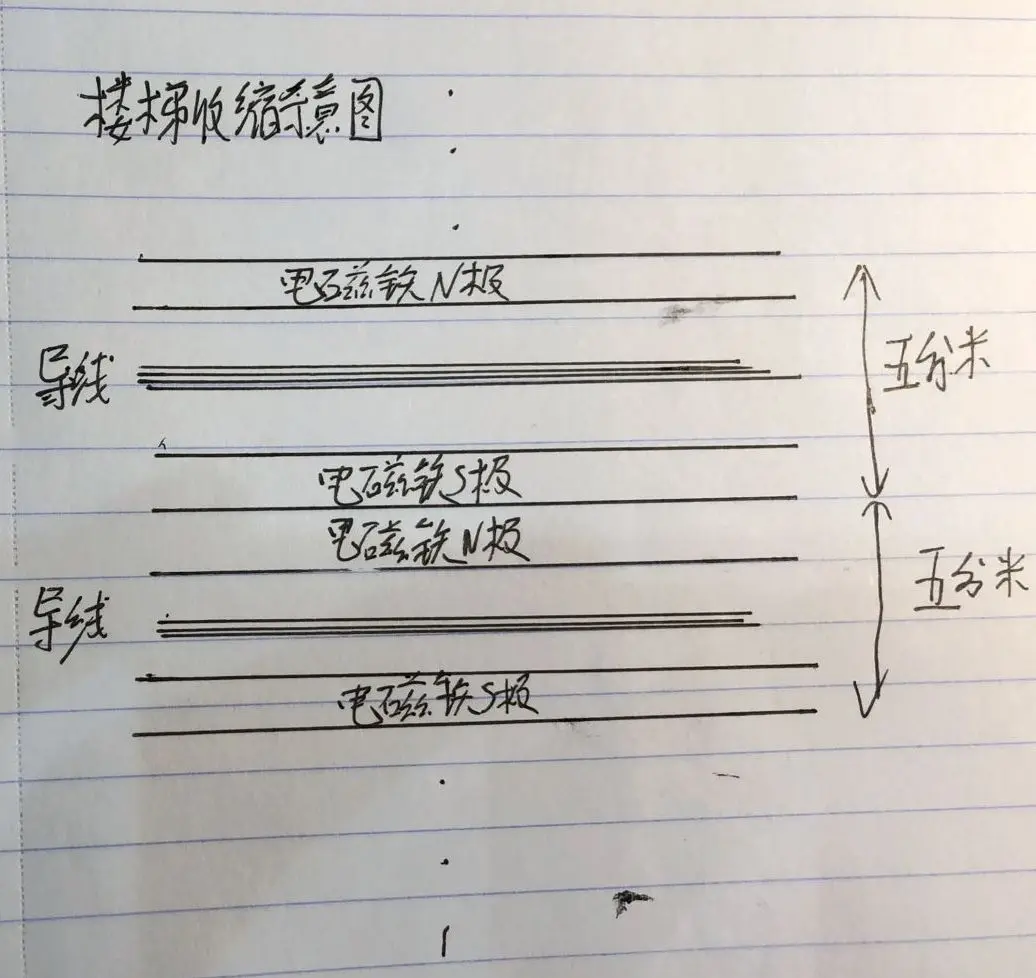 楼梯收缩示意图
电磁铁N极
导线
五分米
电磁铁S极
电磁铁N极
五分米
导线
电磁铁S极